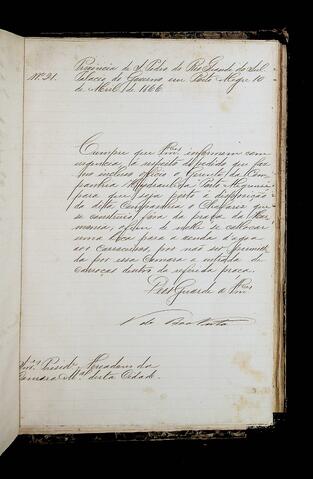 Nº 21.
Provincia de S. Pedro do Rio Grande do Sul
Palacio do Governo em Porto Alegre 10
de Abril de 1866
Cumpre que Vmces informem com
urgencia, a respeito do pedido que faz
no incluso officio o Gerente da Com-
panhia Hydraulica Porto Alegrense
para que seja posto a disposição
da dita Companhia o Chafares que
se construio fóra da praça da Har-
monia, afim de nelle se collocar
uma bica para a venda d'agoa
aos carroceiros, por não ser permit-
tida por essa Camara a entrada de
carroças dentro da referida praça.
Deos Guarde a Vmces
V. da Boa Vista
Snrs. Presid.e Vereadores da
Camara M.al desta Cidade.